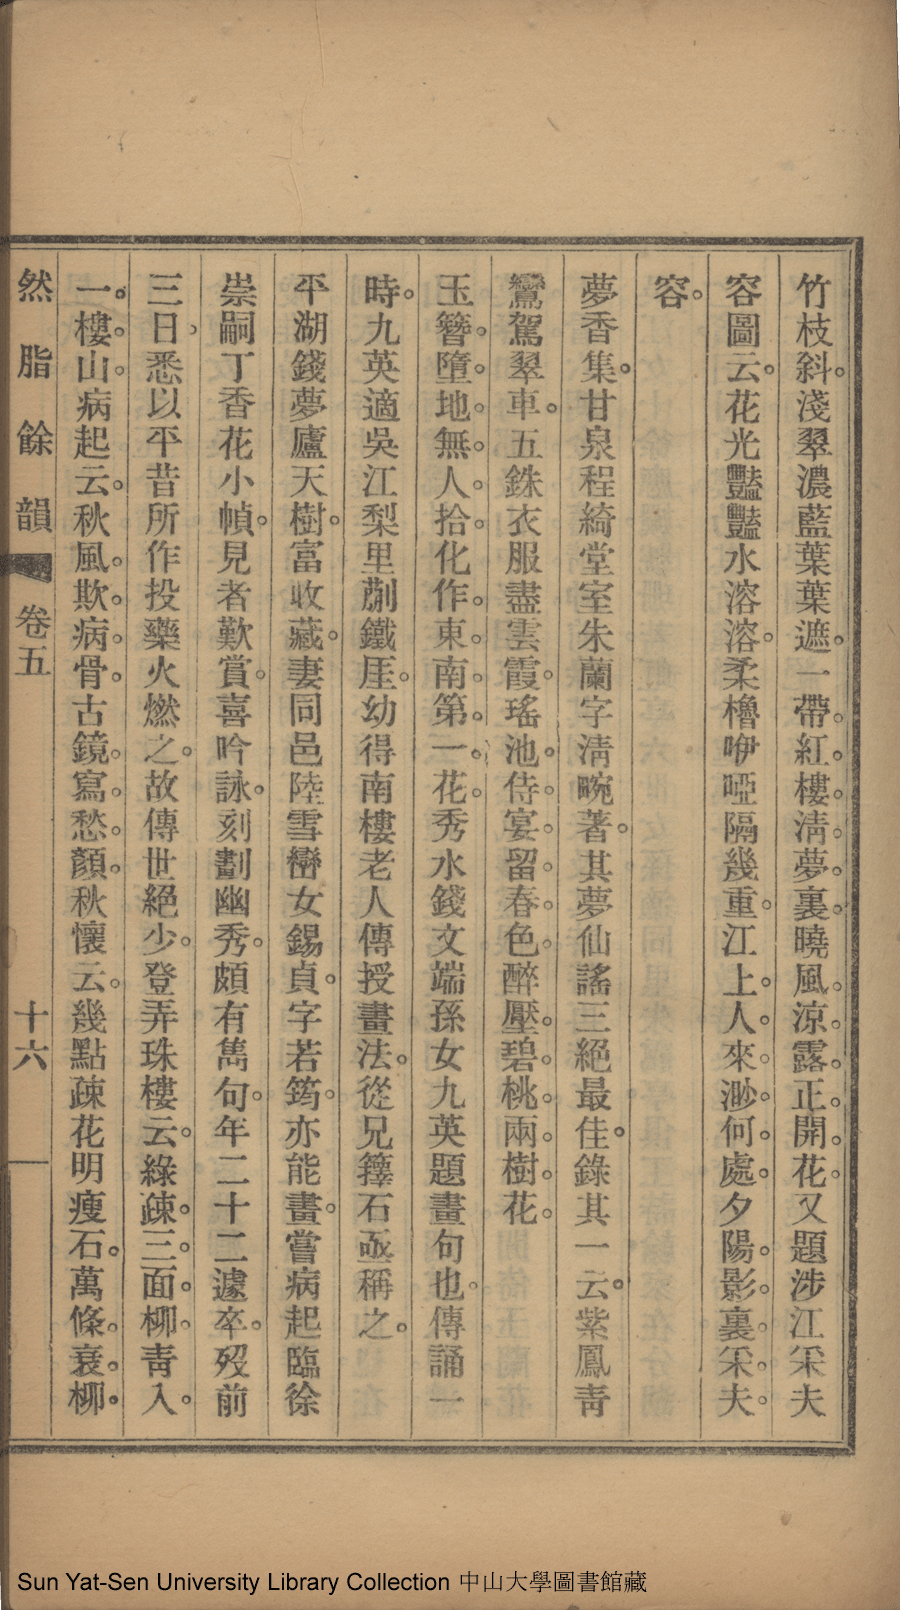 竹枝斜。淺翠濃藍葉葉遮。一帶。紅。樓。淸。夢。裏。曉風。涼。露。正。開。花。又題涉江采夫
容圖云。花光豔豔水溶溶。柔櫓咿啞隔幾重。江上。人。來。渺。何。處。夕陽。影。裏。采。夫。
容。
夢香集。甘泉程綺堂室朱蘭字淸畹著。其夢仙謠三絕最佳。錄其一云。紫鳳靑
鸞駕翠車。五銖衣服盡雲霞。瑤池。侍。宴。留。春。色。醉壓。碧。桃。兩。樹。花。
玉簪。墮。地。無。人。拾。化作。東。南。第。一。花。秀水錢文端孫女九英題畫句也。傳誦一
時。九英適吳江梨里蒯鐵厓。幼得南樓老人傳授畫法。從兄籜石亟稱之。
平湖錢夢廬天樹。富收藏。妻同邑陸雪巒女錫貞。字若筠。亦能畫。嘗病起臨徐
崇嗣丁香花小幀。見者歎賞。喜吟詠。刻劃幽秀。頗有雋句。年二十二遽卒。歿前
三日。悉以平昔所作投藥火燃之。故傳世絕少。登弄珠樓云。綠疎。三。面。柳。靑入。
一。樓。山。病起云。秋風。欺。病。骨。古鏡。寫。愁。顏。秋懷云。幾點疎花明瘦石。萬條。衰。柳。
然脂餘韻 卷五 十六
Sun Yat-Sen University Library Collection 中山大學圖書館藏